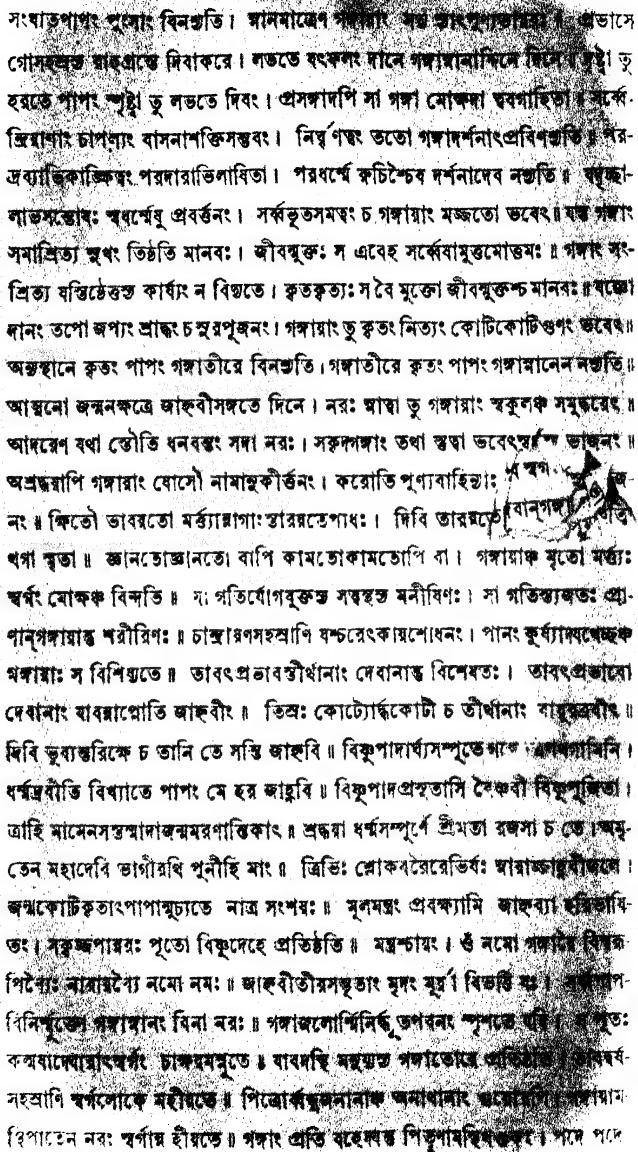 সংঘাতপাপং পুংসাং বিনশ্যতি। স্নানমাত্রেণ গঙ্গায়াং প্রভাসে
গোসহস্রস্য রাহুগ্রস্তে দিবাকরে। লভতে যৎফলং দানে গঙ্গাস্নানাদ্দিনে দিনে॥ দৃষ্ট্বা তু
হরতে পাপং স্পৃষ্ট্বা তু লভতে দিবং। প্রসঙ্গাদপি সা গঙ্গা মোক্ষদা ত্ববগাহিতা॥ সর্ব্বে-
ন্দ্রিয়াণাং চাপল্যং বাসনাশক্তিসম্ভবং। নির্ঘৃণত্বং ততো গঙ্গাদর্শনাৎপ্রবিণশ্যতি॥ পর-
দ্রব্যাভিকাঙ্ক্ষিত্বং পরদারাভিলাষিতা। পরধর্ম্মে রুচিশ্চৈব দর্শনাদেব নশ্যতি॥ যদৃচ্ছা-
লাভসন্তোষঃ স্বধর্ম্মেষু প্রবর্ত্তনং। সর্ব্বভূতসমত্বং চ গঙ্গায়াং মজ্জতো ভবেৎ॥ যস্তু গঙ্গাং
সমাশ্রিত্য সুখং তিষ্ঠতি মানবঃ। জীবন্মুক্তঃ স এবেহ সর্ব্বেষামুত্তমোত্তমঃ॥ গঙ্গাং সং-
শ্রিত্য যস্তিষ্ঠেত্তস্য কার্য্যং ন বিদ্যতে। কৃতকৃত্যঃ স বৈ মুক্তো জীবন্মুক্তশ্চ মানবঃ॥ যজ্ঞো
দানং তপো জপ্যং শ্রাদ্ধং চ সুরপূজনং। গঙ্গায়াং তু কৃতং নিত্যং কোটিকোটিগুণং ভবেৎ॥
অন্যস্থানে কৃতং পাপং গঙ্গাতীরে বিনশ্যতি। গঙ্গাতীরে কৃতং পাপং গঙ্গাস্নানেন নশ্যতি॥
আত্মনো জন্মনক্ষত্রে জাহ্নবীসঙ্গতে দিনে। নরঃ স্নাত্বা তু গঙ্গায়াং স্বকুলঞ্চ সমুদ্ধরেৎ॥
আদরেণ যথা স্তৌতি ধনবন্তং সদা নরঃ। সকৃদ্গঙ্গাং তথা স্তুত্বা ভবেৎস্বর্গস্য ভাজনং॥
অশ্রদ্ধয়াপি গঙ্গায়াং যোসৌ নামানুকীর্ত্তনং। করোতি পুণ্যবাহিন্যাঃ স্বর্গ
নং॥ ক্ষিতৌ ভাবয়তো মর্ত্ত্যান্নাগাংস্তারয়তেপ্যধঃ। দিবি তারয়তে
থগা স্মৃতা॥ জ্ঞানতোজ্ঞানতো বাপি কামতোকামতোপি বা। গঙ্গায়াঞ্চ মৃতো মর্ত্ত্যঃ
স্বর্গং মোক্ষঞ্চ বিন্দতি॥ যা গতির্যোগযুক্তস্য সত্বস্থস্য মনীষিণঃ। সা গতিস্ত্যজতঃ প্রা-
ণান্গঙ্গায়ান্তু শরীরিণঃ॥ চান্দ্রায়ণসহস্রাণি যশ্চরেৎকায়শোধনং। পানং কুর্য্যাদ্যথেচ্ছঞ্চ
গঙ্গায়াঃ স বিশিষ্যতে॥ তাবৎপ্রভাবস্তীর্থানাং দেবানান্তু বিশেষতঃ। তাবৎপ্রভাবো
দেবানাং যাবন্নাপ্নোতি জাহ্নবীং॥ তিস্রঃ কোট্যোর্দ্ধকোটী চ তীর্থানাং বায়ুরব্রবীৎ॥
দিবি ভুব্যন্তরিক্ষে চ তানি তে সন্তি জাহ্নবি॥ বিষ্ণুপাদার্ঘ্যসম্ভূতে গঙ্গে ত্রিপথগামিনি।
ধর্ম্মদ্রবীতি বিখ্যাতে পাপং মে হর জাহ্নবি॥ বিষ্ণুপাদপ্রসূতাসি বৈষ্ণবী বিষ্ণুপূজিতা।
ত্রাহি মামেনসস্তস্মাদাজন্মমরণান্তিকাৎ॥ শ্রদ্ধয়া ধর্ম্মসম্পূর্ণে শ্রীমতা রজসা চ তে। অমৃ-
তেন মহাদেবি ভাগীরথি পুনীহি মাং॥ ত্রিভিঃ শ্লোকবরৈরেভির্যঃ স্নায়াজ্জাহ্নবীজলে।
জন্মকোটিকৃতাৎপাপান্মুচ্যতে নাত্র সংশয়ঃ॥ মূলমন্ত্রং প্রবক্ষ্যামি জাহ্নব্যা হরিভাষি-
তং। সকৃজ্জপান্নরঃ পূতো বিষ্ণুদেহে প্রতিষ্ঠতি॥ মন্ত্রশ্চায়ং। ওঁ নমো গঙ্গায়ৈ বিশ্বরূ-
পিণ্যৈঃ নারায়ণ্যৈ নমো নমঃ॥ জাহ্নবীতীরসম্ভূতাং মৃদং মূর্দ্ধ্না বিভর্ত্তি যঃ। সর্ব্বপাপ-
বিনির্ম্মুক্তো গঙ্গাস্নানং বিনা নরঃ॥ গঙ্গাজলোর্ম্মিনির্দ্ধূতপবনং স্পৃশতে যদি। স পূতঃ
কল্মষাদ্ঘোরাৎস্বর্গং চাক্ষয়মশ্নুতে॥ যাবদস্থি মনুষ্যস্য গঙ্গাতোয়ে প্রতিষ্ঠতি। তাবদ্বর্ষ-
সহস্রাণি স্বর্গলোকে মহীয়তে॥ পিত্রোর্ব্বন্ধুজনানাঞ্চ অনাথানাং গুরোরপি। গঙ্গায়াম-
স্থিপাতেন নরঃ স্বর্গান্ন হীয়তে॥ গঙ্গাং প্রতি বহেদ্যস্তু পিতৄণামস্থিখণ্ডকং। পদে পদে